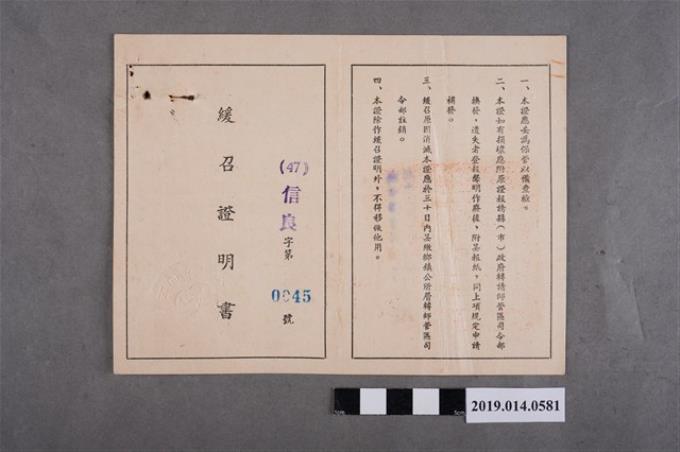 一、本證應妥為保管以備查驗。
二、本證如有損壞應附原證報請縣（市）政府轉請師管區司令部
換發，遺失者登報聲明作廢後，附呈報紙，同上項規定申請
補發。
三、緩召原因消滅本證應於三十日內呈繳鄉鎮公所層轉師管區司
令部註銷。
四、本證除作緩召證明外，不得移做他用。
緩召證明書
(47)信良字第0045號
2019.014.0581